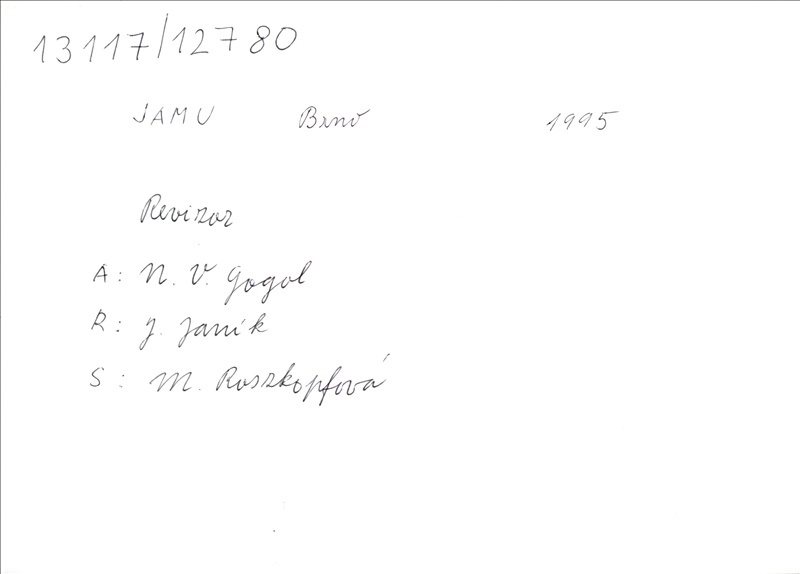 13117/12780
JAMU Brno 1995
Revizor
A: N. V. Gogol
R: J. Janík
S: M. Roszkopfová